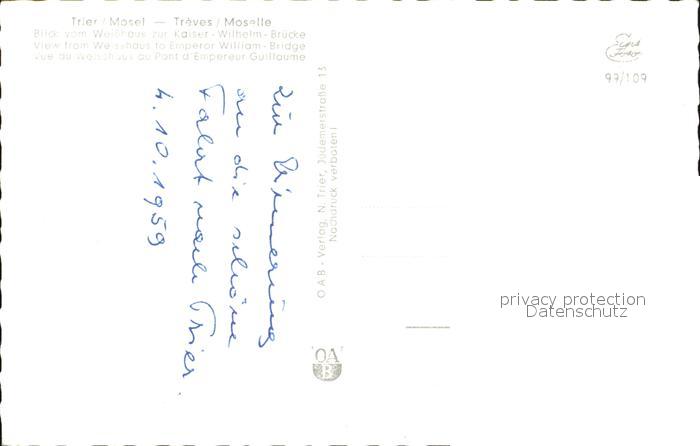 Trier / Mosel — Trèves / Moselle
Blick vom Weißhaus zur Kaiser-Wilhelm-Brücke
View from Weisshaus to Emperor William-Bridge
Vue du Weisshaus au Pont d'Empereur Guillaume
Zur Erinnerung
an die schöne
Fahrt nach Trier
4.10.1959
OAB-Verlag, N. Trier, Jüdemerstraße 13
Nachdruck verboten!
OA
B
97/109
privacy protection
Datenschutz